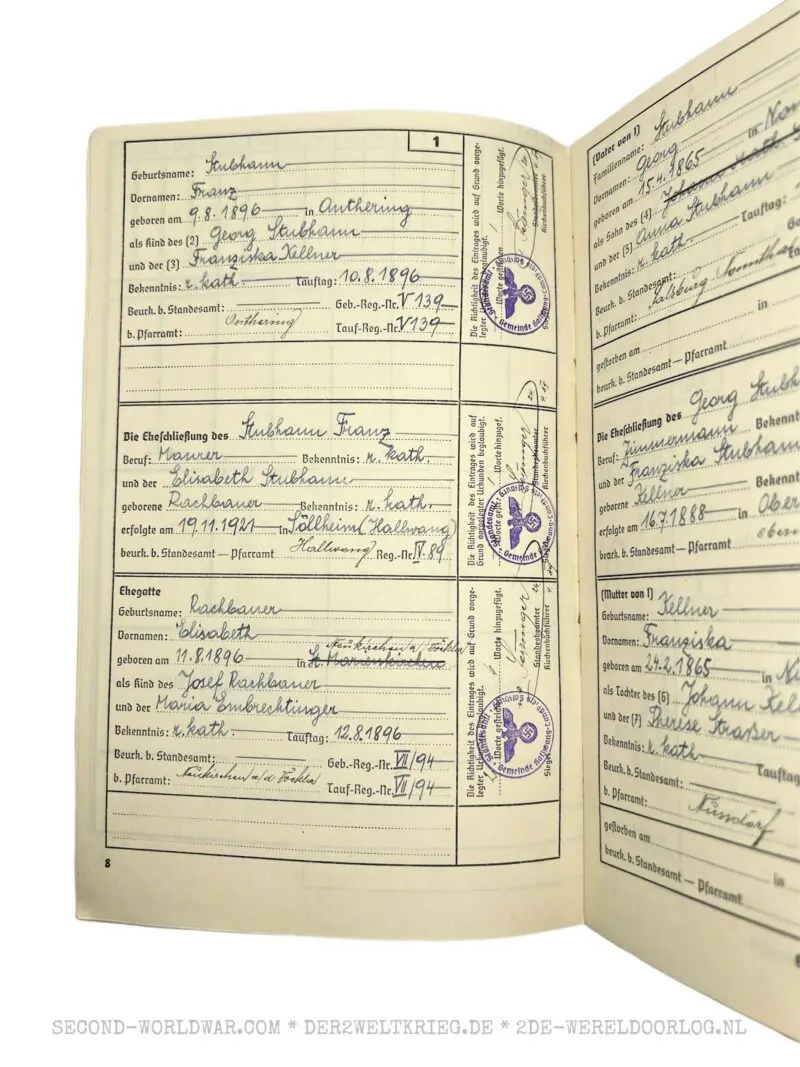 1
Geburtsname: Stubhann
Vornamen: Franz
geboren am 9.8.1896 in Anthering
als Kind des (2) Georg Stubhann
und der (3) Franziska Kellner
Bekenntnis: r. kath. Tauftag: 10.8.1896
Beurk. b. Standesamt: Geb.-Reg.-Nr. V 139
b. Pfarramt: Anthering Tauf-Reg.-Nr. V 139
Die Richtigkeit des Eintrages wird auf Grund vorge-
legter
Worte gestrichen Worte hinzugefügt.
Standesbeamter
Kirchenbuchführer
Standesamt Gemeinde Hallwang
Die Eheschließung des Stubhann Franz
Beruf: Maurer Bekenntnis: r. kath.
und der Elisabeth Stubhann
geborene Rachbauer Bekenntnis: r. kath.
erfolgte am 19.11.1921 in Söllheim (Hallwang)
beurk. b. Standesamt – Pfarramt Hallwang Reg.-Nr. IV. 89
Die Richtigkeit des Eintrages wird auf
Grund vorgelegter Urkunden beglaubigt.
Worte gestr. Worte hinzugef.
Standesbeamter
Kirchenbuchführer
Standesamt Gemeinde Hallwang
Ehegatte
Geburtsname: Rachbauer
Vornamen: Elisabeth
Neukirchen a/d Vöckla
geboren am 11.8.1896 in St. Marienkirchen
als Kind des Josef Rachbauer
und der Maria Embrechtinger
Bekenntnis: r. kath. Tauftag: 12.8.1896
Beurk. b. Standesamt: Geb.-Reg.-Nr. VII/94
b. Pfarramt: Neukirchen a/d Vöckla Tauf-Reg.-Nr. VII/94
Die Richtigkeit des Eintrages wird auf Grund vorge-
legter
Worte gestrichen Worte hinzugefügt.
Standesbeamter
Kirchenbuchführer
Standesamt Gemeinde Hallwang
8
(Vater von 1)
Familienname: Stubhann
Vornamen: Georg
geboren am 15.4.1865 in
als Sohn des (4) Johann
und der (5) Anna Stubhann
Bekenntnis: r. kath. Tauftag:
Beurk. b. Standesamt:
b. Pfarramt: Salzburg
gestorben am in
beurk. b. Standesamt – Pfarramt
Die Eheschließung des Georg
Beruf: Zimmermann
und der Franziska Stubhann
geborene Kellner
erfolgte am 16.7.1888 in
beurk. b. Standesamt – Pfarramt
(Mutter von 1)
Geburtsname: Kellner
Vornamen: Franziska
geboren am 24.2.1865 in
als Tochter des (6) Johann
und der (7) Therese Straßer
Bekenntnis: r. kath. Tauftag
Beurk. b. Standesamt:
b. Pfarramt: Nussdorf
gestorben am in
beurk. b. Standesamt – Pfarramt
SECOND-WORLDWAR.COM * DER2WELTKRIEG.DE * 2DE-WERELDOORLOG.NL